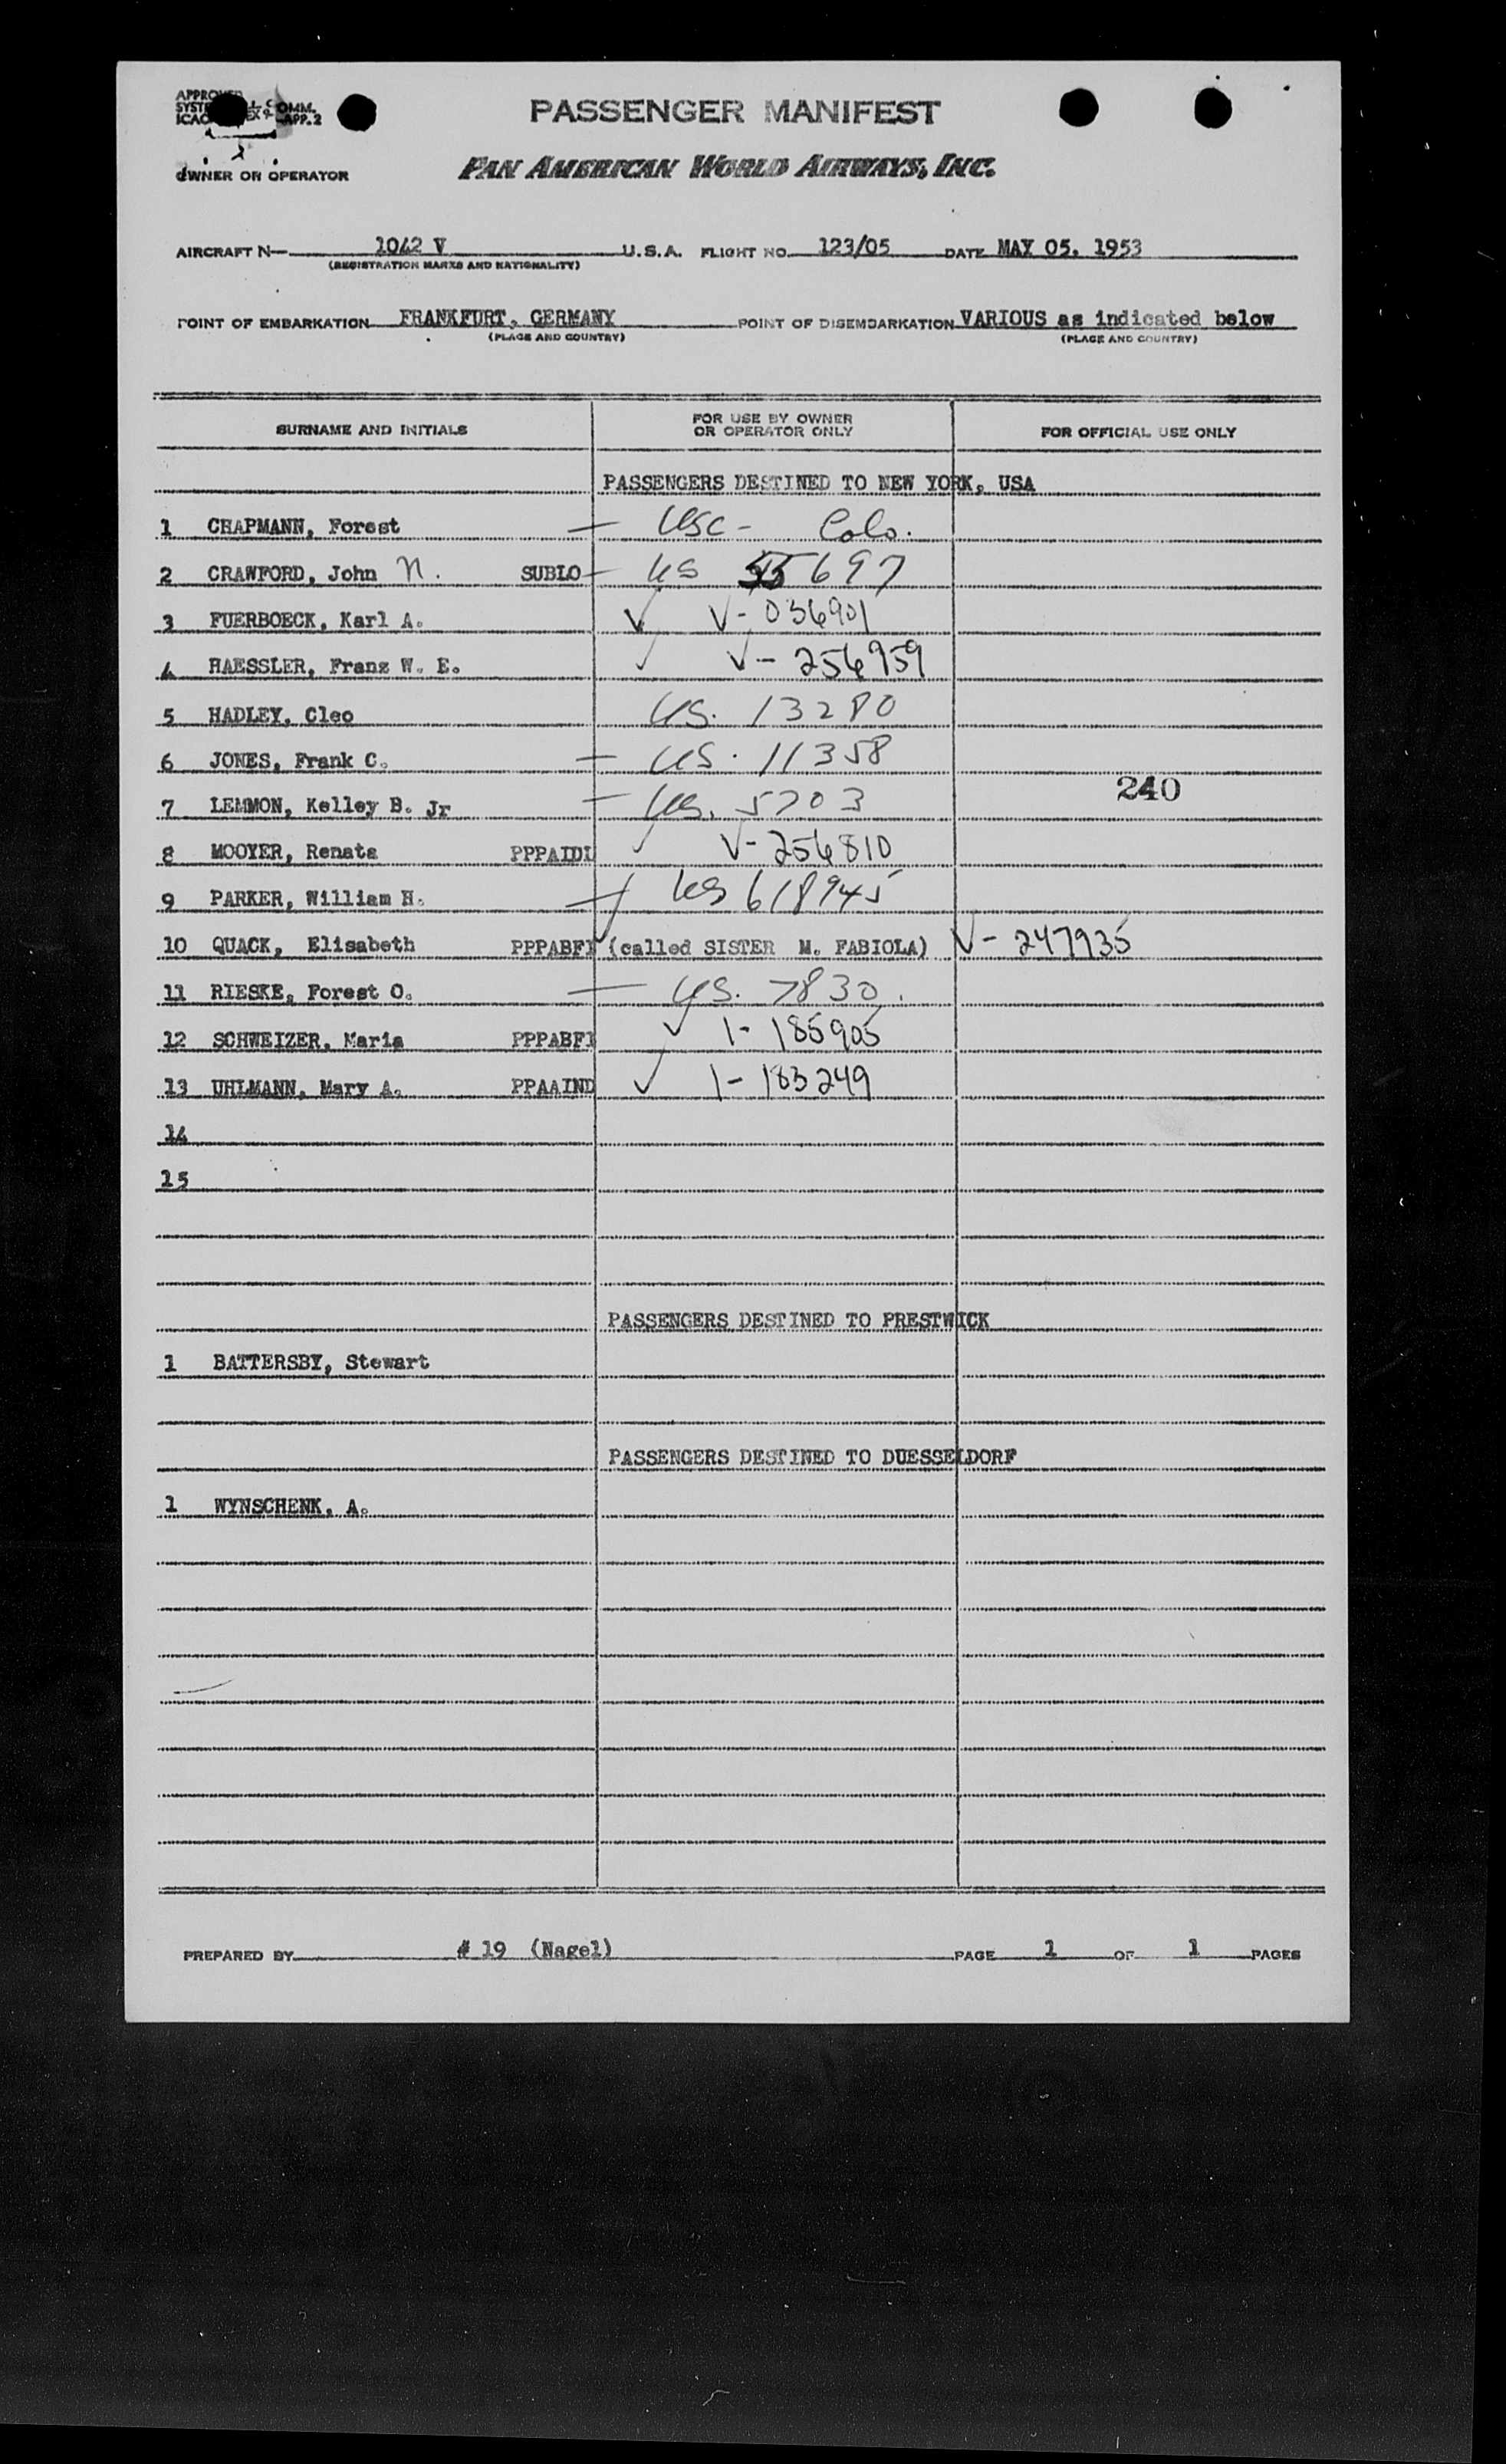 PASSENGER MANIFEST
PAN AMERICAN WORLD AIRWAYS, INC.
OMM.
APP. 2
OWNER OR OPERATOR
AIRCRAFT N— 1042 V U.S.A. FLIGHT NO. 123/05 DATE MAY 05. 1953
(REGISTRATION MARKS AND NATIONALITY)
POINT OF EMBARKATION FRANKFURT, GERMANY POINT OF DISEMBARKATION VARIOUS as indicated below
(PLACE AND COUNTRY) (PLACE AND COUNTRY)
SURNAME AND INITIALS FOR USE BY OWNER OR OPERATOR ONLY FOR OFFICIAL USE ONLY
PASSENGERS DESTINED TO NEW YORK, USA
1 CHAPMANN, Forest — USC - Colo.
2 CRAWFORD, John N. SUBLO — US 55697
3 FUERBOECK, Karl A. ✓ V-036901
4 HAESSLER, Franz W. E. ✓ V-256959
5 HADLEY, Cleo US. 13280
6 JONES, Frank C. — US. 11358
240
7 LEMMON, Kelley B. Jr — US. 5703
8 MOOYER, Renate PPPAIDI ✓ V-256810
9 PARKER, William H. — US 618945
10 QUACK, Elisabeth PPPABFI ✓ (called SISTER M. FABIOLA) V-247935
11 RIESKE, Forest O. — US. 7830.
12 SCHWEIZER, Maria PPPABFI ✓ 1-185905
13 UHLMANN, Mary A. PPAAIND ✓ 1-183249
14
15
PASSENGERS DESTINED TO PRESTWICK
1 BATTERSBY, Stewart
PASSENGERS DESTINED TO DUESSELDORF
1 WYNSCHENK, A.
PREPARED BY # 19 (Nagel) PAGE 1 OF 1 PAGES